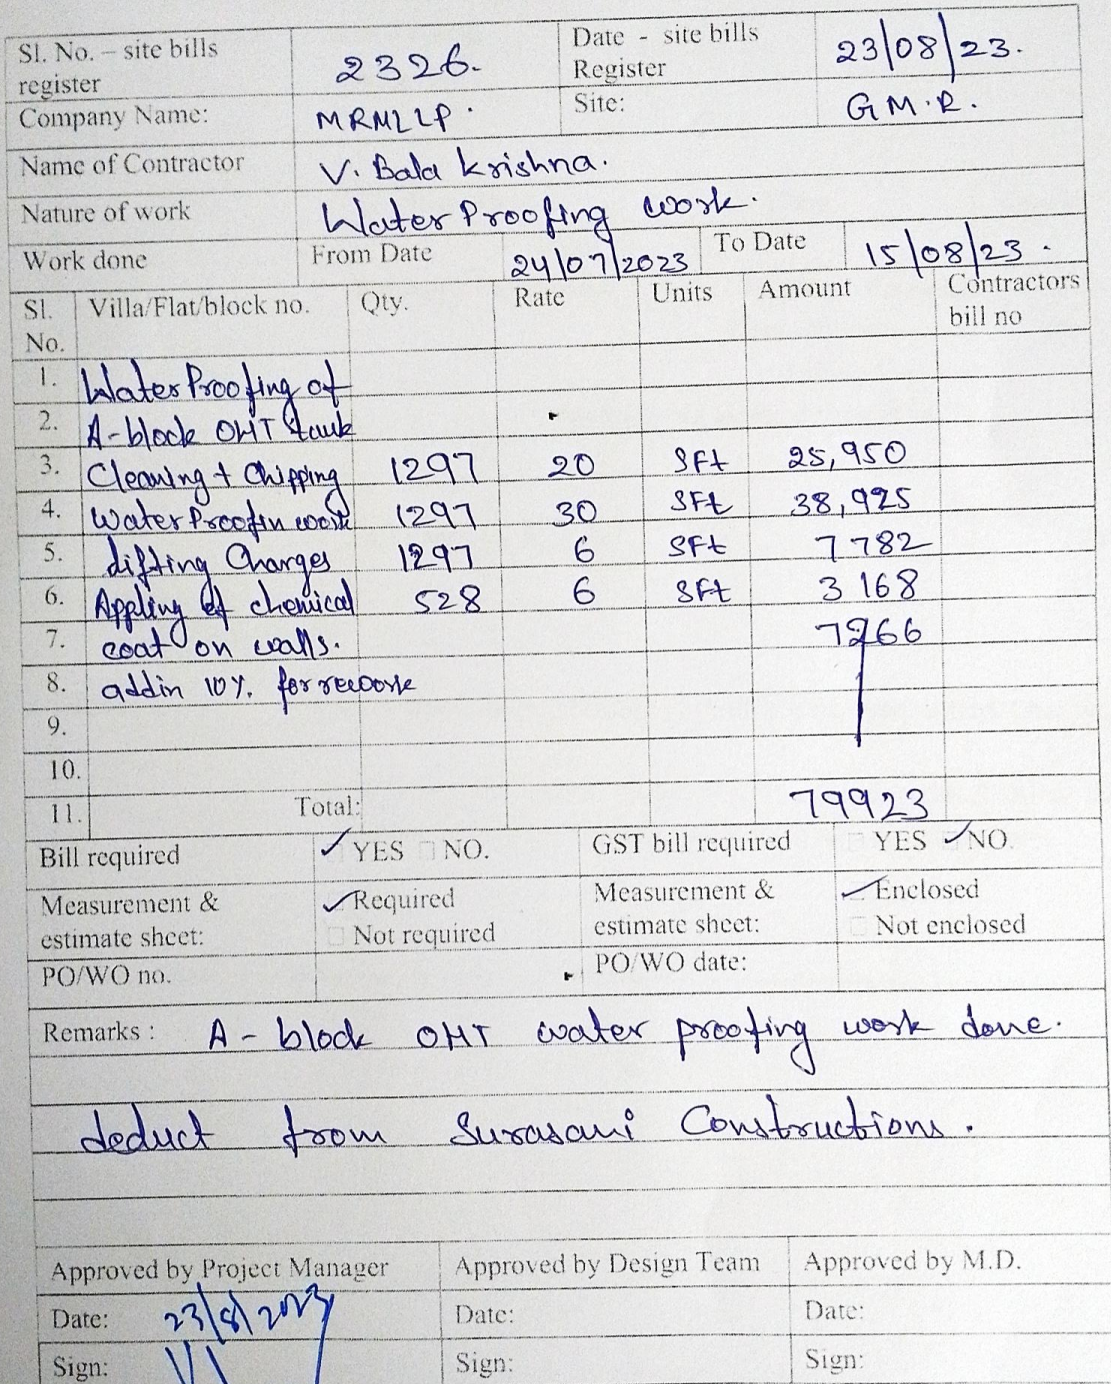 Sl. No. – site bills register 2326. Date - site bills Register 23/08/23.
Company Name: MRMLLP. Site: G M.R.
Name of Contractor V. Bala Krishna.
Nature of work Water Proofing work.
Work done From Date 24/07/2023 To Date 15/08/23.
Sl. No. Villa/Flat/block no. Qty. Rate Units Amount Contractors bill no
1. Water Proofing of
2. A-block OHT tank
3. Cleaning + Chipping 1297 20 Sft 25,950
4. Water Proofin work 1297 30 Sft 38,925
5. lifting Charges 1297 6 Sft 7782
6. Appling of chemical 528 6 Sft 3168
7. coat on walls. 7266
8. addin 10%. for rework
9.
10.
11. Total: 79923
Bill required ✓ YES NO. GST bill required YES ✓ NO.
Measurement & estimate sheet: ✓ Required Not required Measurement & estimate sheet: ✓ Enclosed Not enclosed
PO/WO no. PO/WO date:
Remarks : A - block OHT water proofing work done.
deduct from Surasani Constructions.
Approved by Project Manager Approved by Design Team Approved by M.D.
Date: 23/8/2023 Date: Date:
Sign: Sign: Sign: